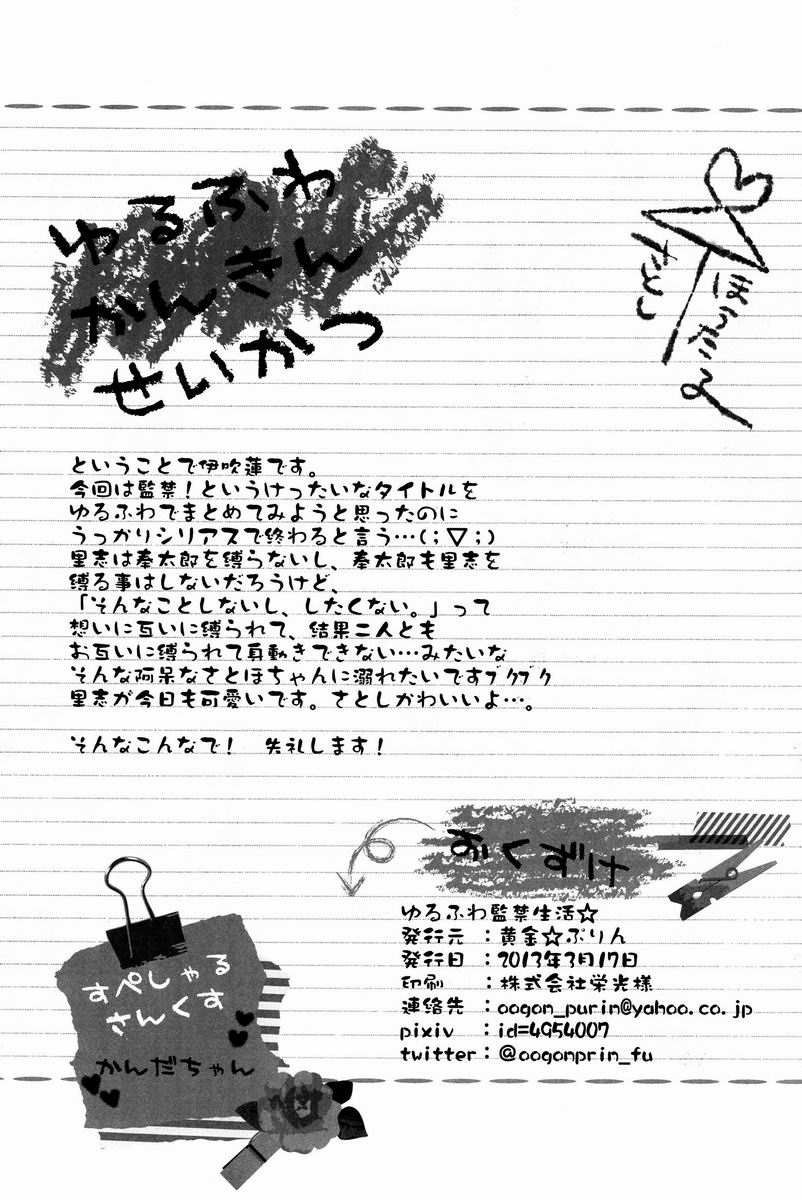 ゆるふわ
かんきん
せいかつ
さとし
ほうたる
ということで伊吹蓮です。
今回は監禁！というけったいなタイトルを
ゆるふわでまとめてみようと思ったのに
うっかりシリアスで終わると言う…(；▽；)
里志は奉太郎を縛らないし、奉太郎も里志を
縛る事はしないだろうけど、
「そんなことしないし、したくない。」って
想いに互いに縛られて、結果二人とも
お互いに縛られて身動きできない…みたいな
そんな阿呆なさとほちゃんに溺れたいですﾌﾞｸﾌﾞｸ
里志が今日も可愛いです。さとしかわいいよ…。
そんなこんなで！　失礼します！
おくづけ
ゆるふわ監禁生活☆
発行元　：黄金☆ぷりん
発行日　：2013年3月17日
印刷　　：株式会社栄光様
連絡先　：oogon_purin@yahoo.co.jp
pixiv　：id=4954007
twitter：@oogonprin_fu
すぺしゃる
さんくす
かんだちゃん